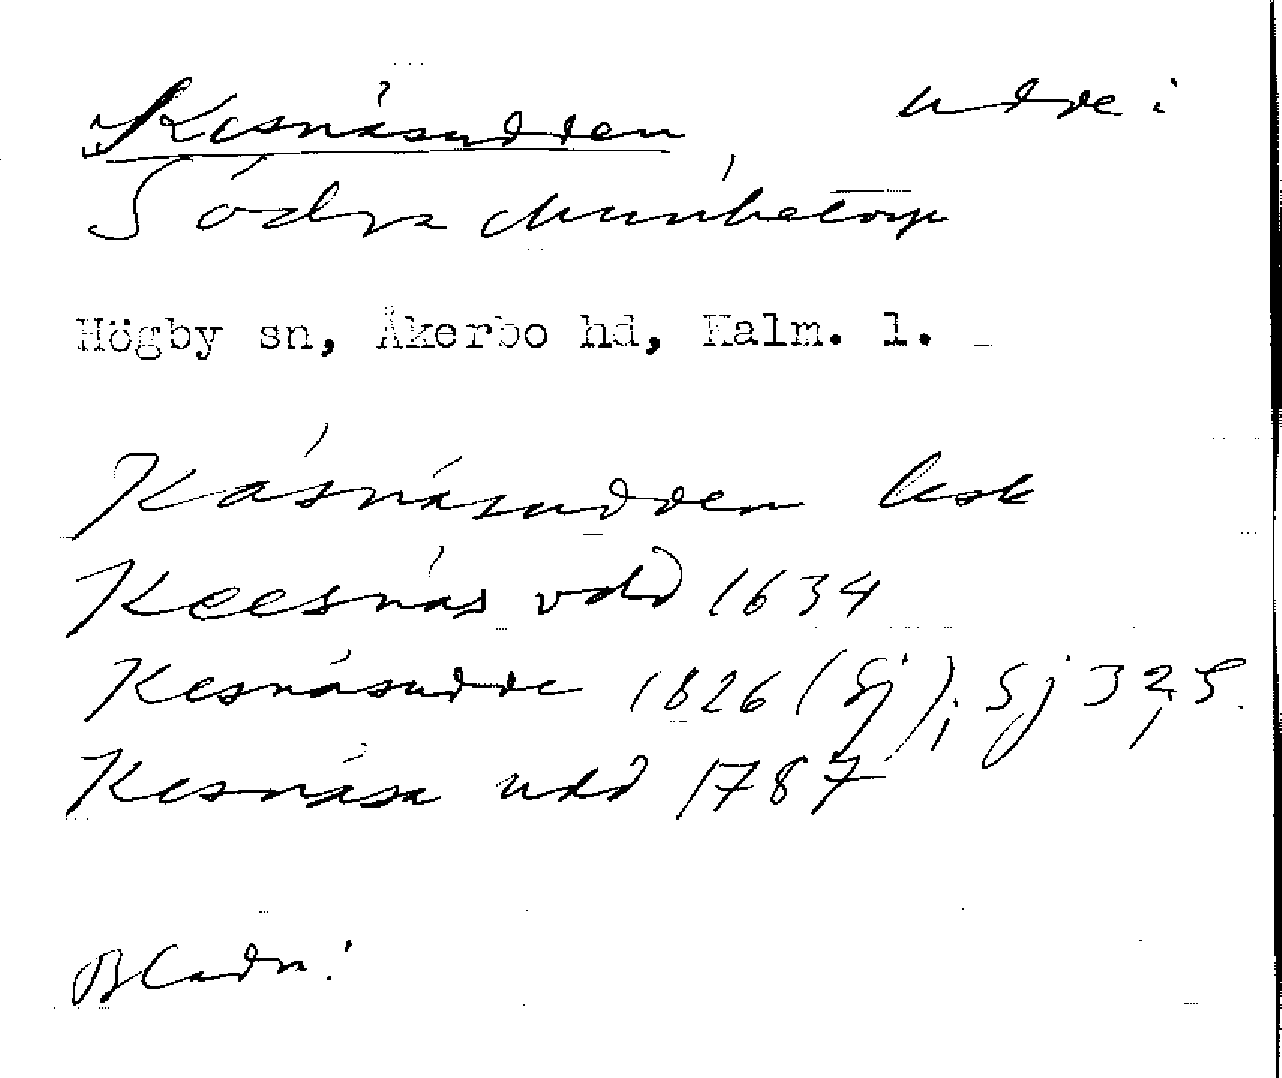 Kesnäsudden udde i
Södra Munketorp
Högby sn, Åkerbo hd, Kalm. l.
Käsnäsudden ksk
Keesnäs vdd 1634
Kesnäsudde 1826 (Sj); Sj 32,5.
Kesnäsa udd 1787
Bladn!